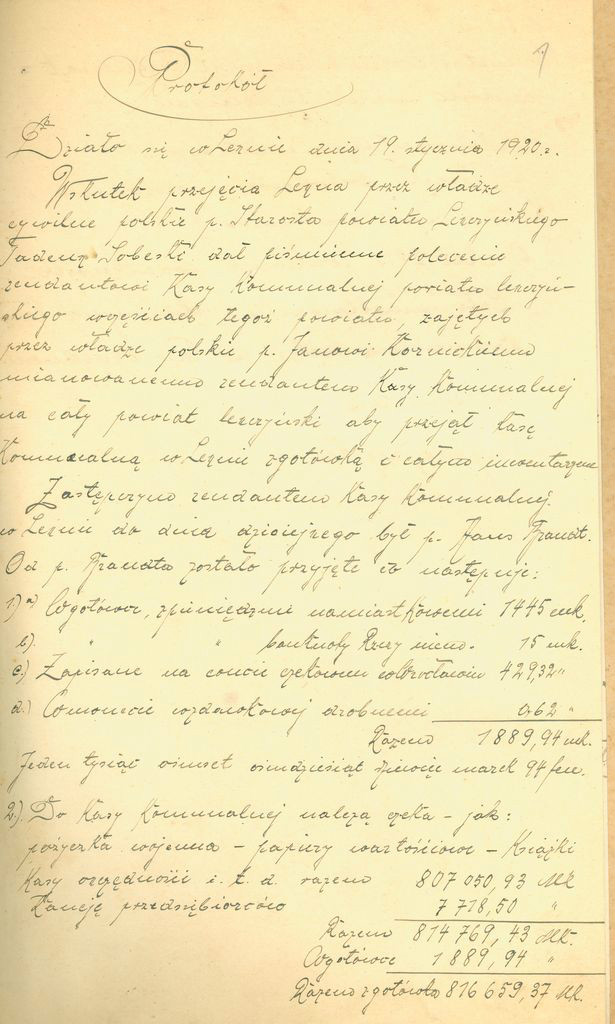 1
Protokół
Działo się w Lesznie dnia 19. stycznia 1920 r.
Wskutek przejęcia Leszna przez władze
cywilne polskie p. Starosta powiatu Leszczyńskiego
Tadeusz Sobeski dał piśmienne polecenie
rendantowi Kasy Komunalnej powiatu leszczyń-
skiego w częściach tegoż powiatu, zajętych
przez władze polskie p. Janowi
mianowanemu rendantem Kasy Komunalnej
na cały powiat leszczyński aby przejął kasę
Komunalną w Lesznie z gotówką i całym inwentarzem
Zastępczym rendantem Kasy Komunalnej
w Lesznie do dnia dzisiejszego był p. Hans Brandt.
Od p. Brandta zostało przyjęte co następuje:
1) a) W gotówce, z pieniędzmi namiastkowemi 1445 mk.
b) " " banknoty Rzeszy niem. 15 mk.
c.) Zapisane na koncie czekowem w Wrocławiu 429,32 "
d.) W monecie drobnemi 0,62 "
Razem 1889,94 mk.
Jeden tysiąc ośmset ośmdziesiąt dziewięć marek 94 fen.
2.) Do Kasy Komunalnej należą - jak:
pożyczka wojenna - papiery wartościowe - Książki
Kasy oszczędności i. t. d. razem 807 050,93 Mk
Kaucje przedsiębiorców 7 718,50 "
Razem 814 769,43 Mk.
W gotówce 1 889,94 "
Razem z gotówką 816 659,37 Mk.